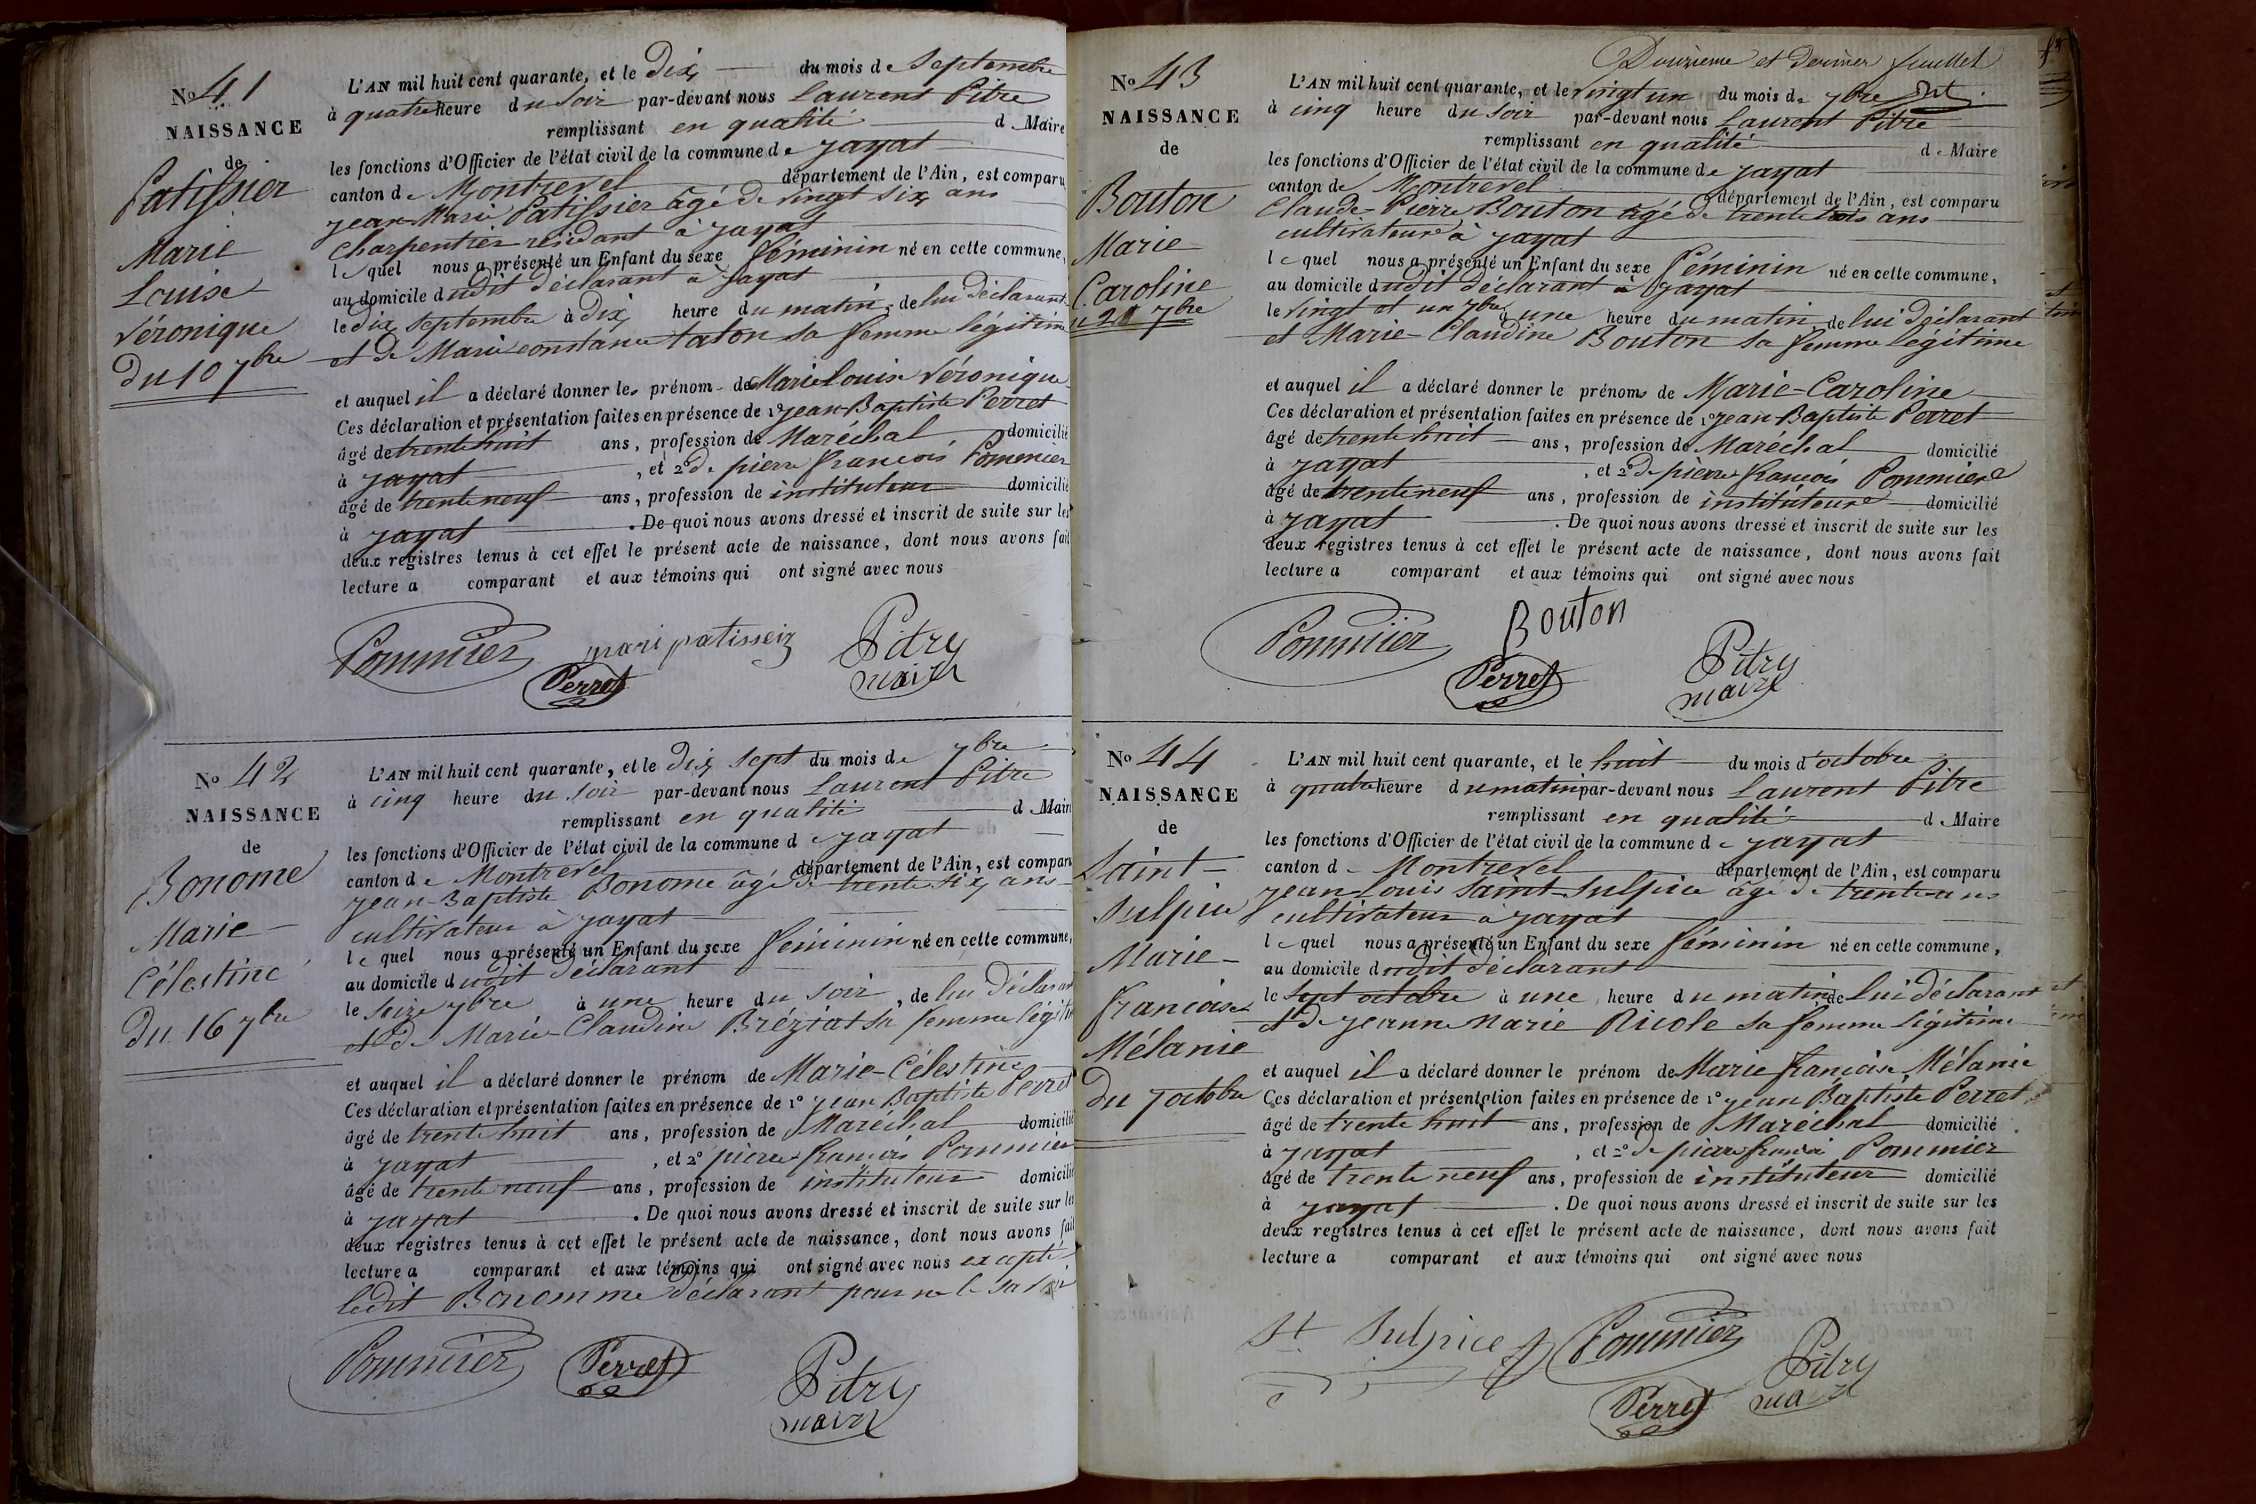 No 41
NAISSANCE
de
Patissier
Marie
Louise
Véronique
du 10 7bre
L'AN mil huit cent quarante, et le Dix du mois de Septembre
à quatre heure du soir par-devant nous Laurent Pitre
remplissant en qualité de Maire
les fonctions d'Officier de l'état civil de la commune de Jayat
canton de Montrevel département de l'Ain, est comparu
Jean-Marie Patissier âgé de vingt six ans
Charpentier résidant à Jayat
lequel nous a présenté un Enfant du sexe féminin né en cette commune,
au domicile dudit Déclarant à Jayat
le dix septembre à dix heure du matin, de lui Déclarant
et de Marie constance taton sa femme légitime
et auquel il a déclaré donner les prénom de Marie Louise Véronique
Ces déclaration et présentation faites en présence de 1º Jean Baptiste Perret
âgé de trente huit ans, profession de Maréchal domicilié
à Jayat, et 2º de pierre françois Pommier
âgé de trente neuf ans, profession de instituteur domicilié
à Jayat. De quoi nous avons dressé et inscrit de suite sur les
deux registres tenus à cet effet le présent acte de naissance, dont nous avons fait
lecture a comparant et aux témoins qui ont signé avec nous
Pommier mari patisseiz Pitry
Perret maire
No 42
NAISSANCE
de
Bonome
Marie
Célestine
du 16 7bre
L'AN mil huit cent quarante, et le Dix sept du mois de 7bre
à cinq heure du soir par-devant nous Laurent Pitre
remplissant en qualité d Maire
les fonctions d'Officier de l'état civil de la commune de Jayat
canton de Montrevel département de l'Ain, est comparu
Jean-Baptiste Bonome âgé de trente six ans
cultivateur à Jayat
lequel nous a présenté un Enfant du sexe féminin né en cette commune,
au domicile dudit Déclarant
le seize 7bre à une heure du soir, de lui Déclarant
et de Marie Claudine Bréziat sa femme légitime
et auquel il a déclaré donner le prénom de Marie-Célestine
Ces déclaration et présentation faites en présence de 1º Jean Baptiste Perret
âgé de trente huit ans, profession de Maréchal domicilié
à Jayat, et 2º pierre françois Pommier
âgé de trente neuf ans, profession de instituteur domicilié
à Jayat. De quoi nous avons dressé et inscrit de suite sur les
deux registres tenus à cet effet le présent acte de naissance, dont nous avons fait
lecture a comparant et aux témoins qui ont signé avec nous excepté
ledit Bonomme déclarant pour ne le savoir
Pommier Perret Pitry
maire
Douzième et dernier feuillet
No 43
NAISSANCE
de
Bouton
Marie
Caroline
21 7bre
L'AN mil huit cent quarante, et le vingt un du mois de 7bre
à cinq heure du soir par-devant nous Laurent Pitre
remplissant en qualité de Maire
les fonctions d'Officier de l'état civil de la commune de Jayat
canton de Montrevel département de l'Ain, est comparu
Claude-Pierre Bouton âgé de trente trois ans
cultivateur à Jayat
lequel nous a présenté un Enfant du sexe féminin né en cette commune,
au domicile dudit déclarant à Jayat
le vingt et un 7bre à une heure du matin de lui déclarant
et Marie-Claudine Bouton sa femme légitime
et auquel il a déclaré donner le prénoms de Marie-Caroline
Ces déclaration et présentation faites en présence de 1º Jean Baptiste Perret
âgé de trente huit ans, profession de Maréchal domicilié
à Jayat, et 2º de pierre françois Pommier
âgé de trente neuf ans, profession de instituteur domicilié
à Jayat. De quoi nous avons dressé et inscrit de suite sur les
deux registres tenus à cet effet le présent acte de naissance, dont nous avons fait
lecture a comparant et aux témoins qui ont signé avec nous
Pommier Bouton
Perret Pitry
maire
No 44
NAISSANCE
de
Saint-
Sulpice
Marie-
françoise
Mélanie
Du 7 octobre
L'AN mil huit cent quarante, et le huit du mois d'octobre
à quatre heure du matin par-devant nous Laurent Pitre
remplissant en qualité de Maire
les fonctions d'Officier de l'état civil de la commune de Jayat
canton de Montrevel département de l'Ain, est comparu
Jean-Louis Saint-Sulpice âgé de trente ans
cultivateur à Jayat
lequel nous a présenté un Enfant du sexe féminin né en cette commune,
au domicile dudit déclarant
le sept octobre à une heure du matin de lui déclarant
et de Jeanne Marie Nicole sa femme légitime
et auquel il a déclaré donner le prénom de Marie françoise Mélanie
Ces déclaration et présentation faites en présence de 1º Jean Baptiste Perret
âgé de trente huit ans, profession de Maréchal domicilié
à Jayat, et 2º de pierre françois Pommier
âgé de trente neuf ans, profession de instituteur domicilié
à Jayat. De quoi nous avons dressé et inscrit de suite sur les
deux registres tenus à cet effet le présent acte de naissance, dont nous avons fait
lecture a comparant et aux témoins qui ont signé avec nous
St Sulpice Pommier Pitry
Perret maire